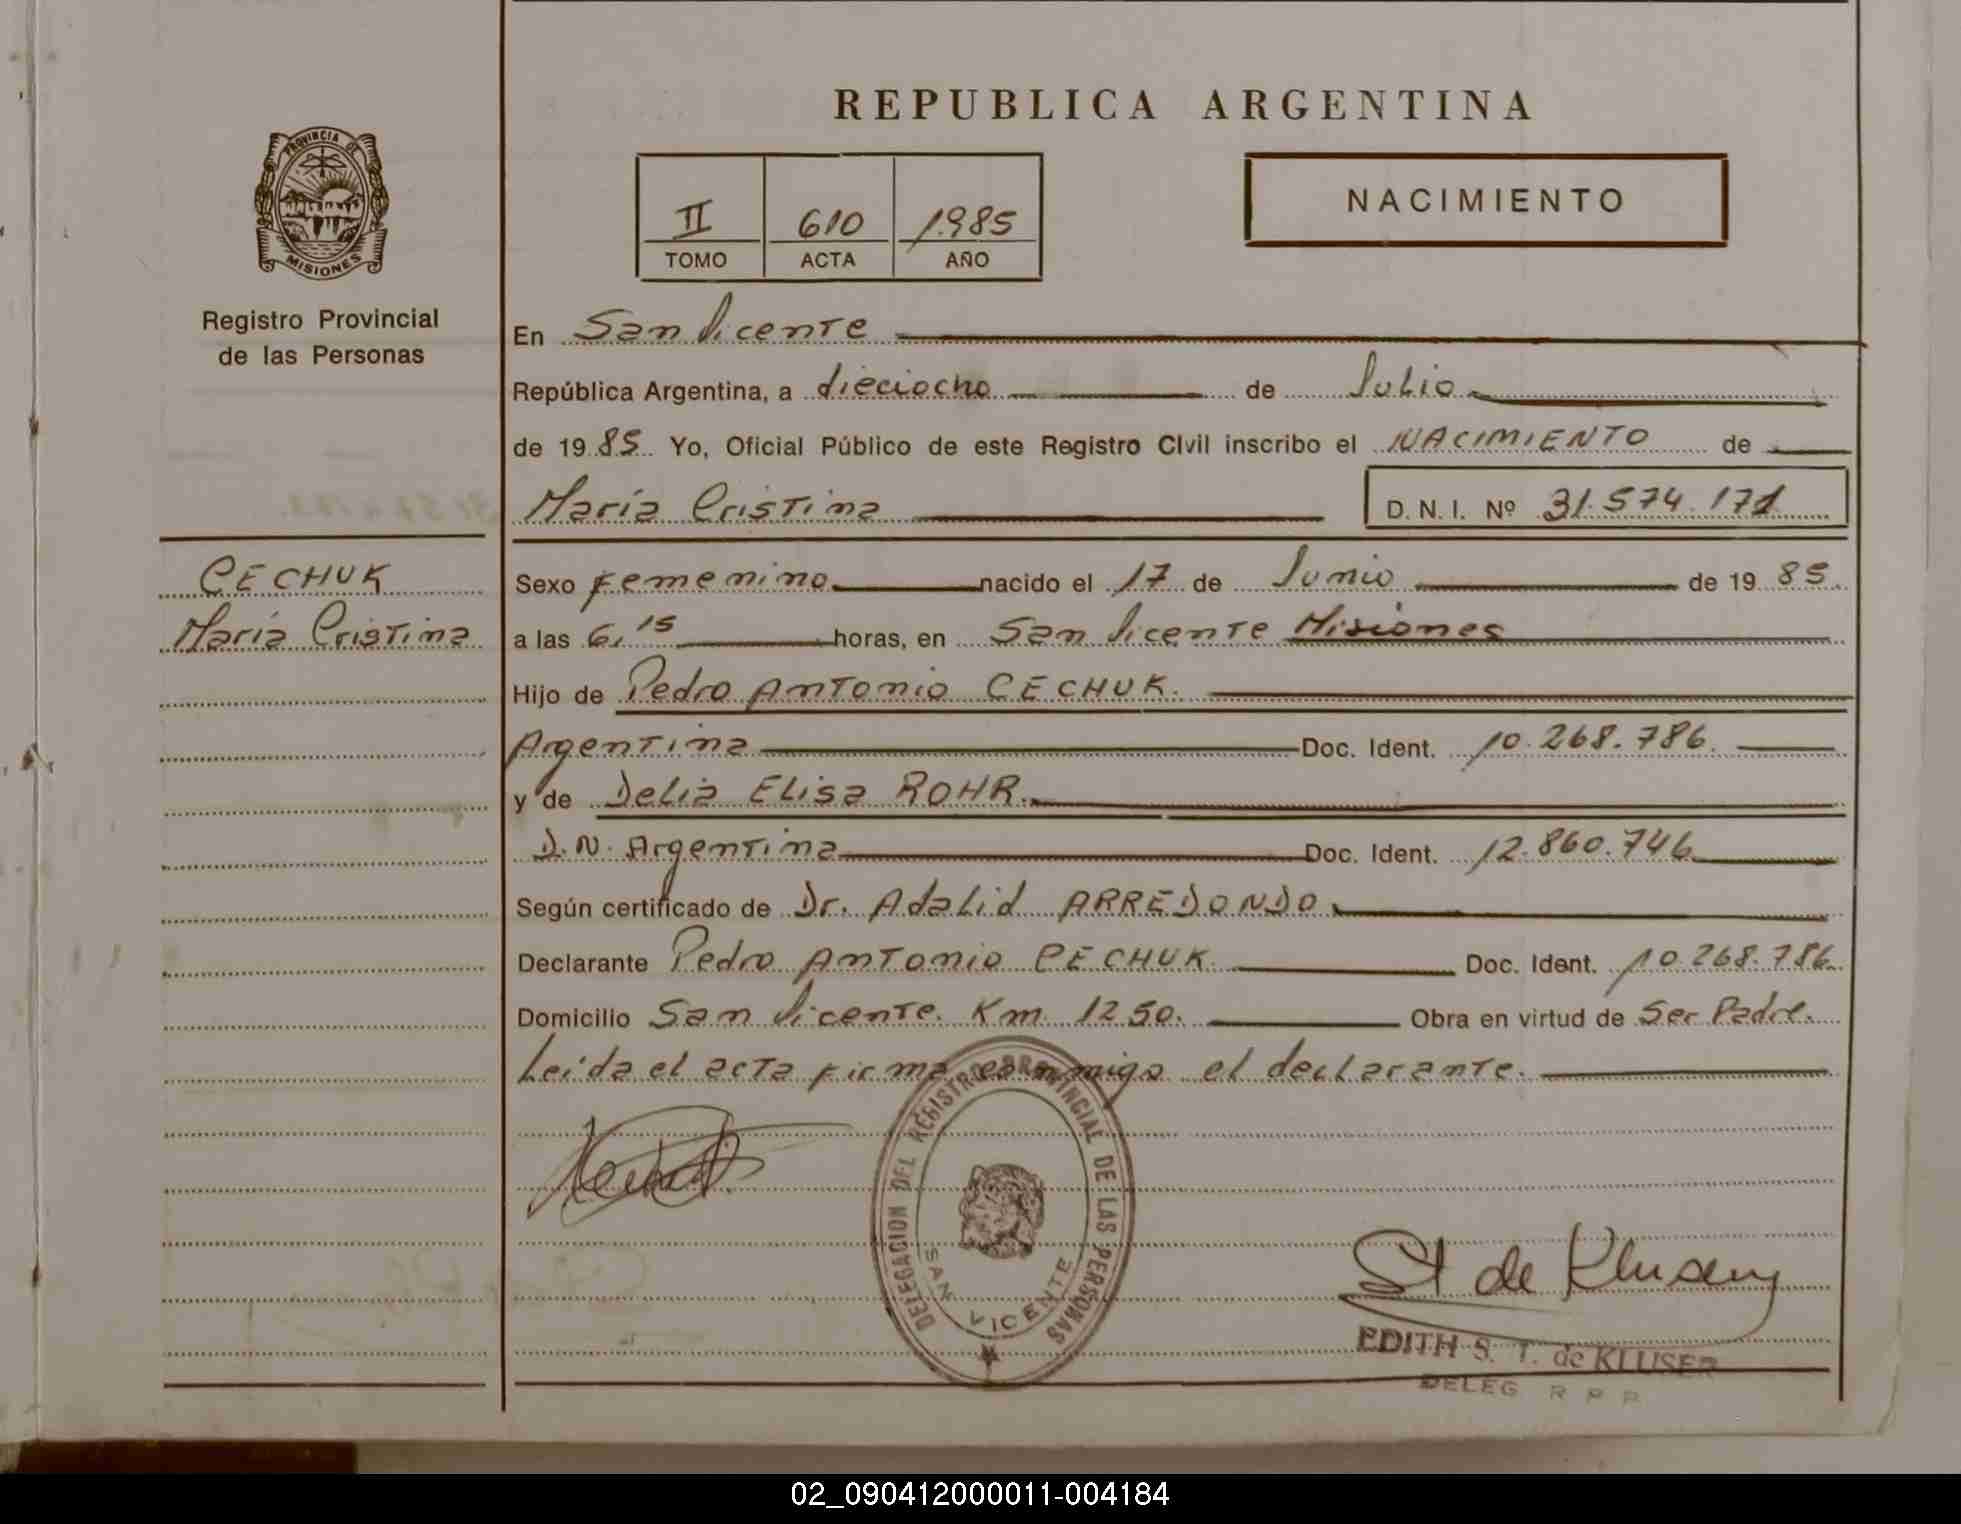 REPUBLICA ARGENTINA
PROVINCIA DE
MISIONES
Registro Provincial
de las Personas
II 610 1985
TOMO ACTA AÑO
NACIMIENTO
En San Vicente
República Argentina, a dieciocho de Julio
de 1985. Yo, Oficial Público de este Registro Civil inscribo el NACIMIENTO de
María Cristina D. N. I. Nº 31.574.171
CECHUK
María Cristina
Sexo Femenino nacido el 17 de Junio de 1985.
a las 6,15 horas, en San Vicente Misiones
Hijo de Pedro Antonio CECHUK.
Argentina Doc. Ident. 10.268.786.
y de Delia Elisa ROHR.
D.N. Argentina Doc. Ident. 12.860.746
Según certificado de Dr. Adalid ARREDONDO
Declarante Pedro Antonio CECHUK. Doc. Ident. 10.268.786.
Domicilio San Vicente. Km 1250. Obra en virtud de Ser Padre.
Leida el acta firma conmigo el declarante.
DELEGACION DEL REGISTRO PROVINCIAL DE LAS PERSONAS
SAN VICENTE
St de Kluser
EDITH S. T. de KLUSER
DELEG R P P
02_090412000011-004184